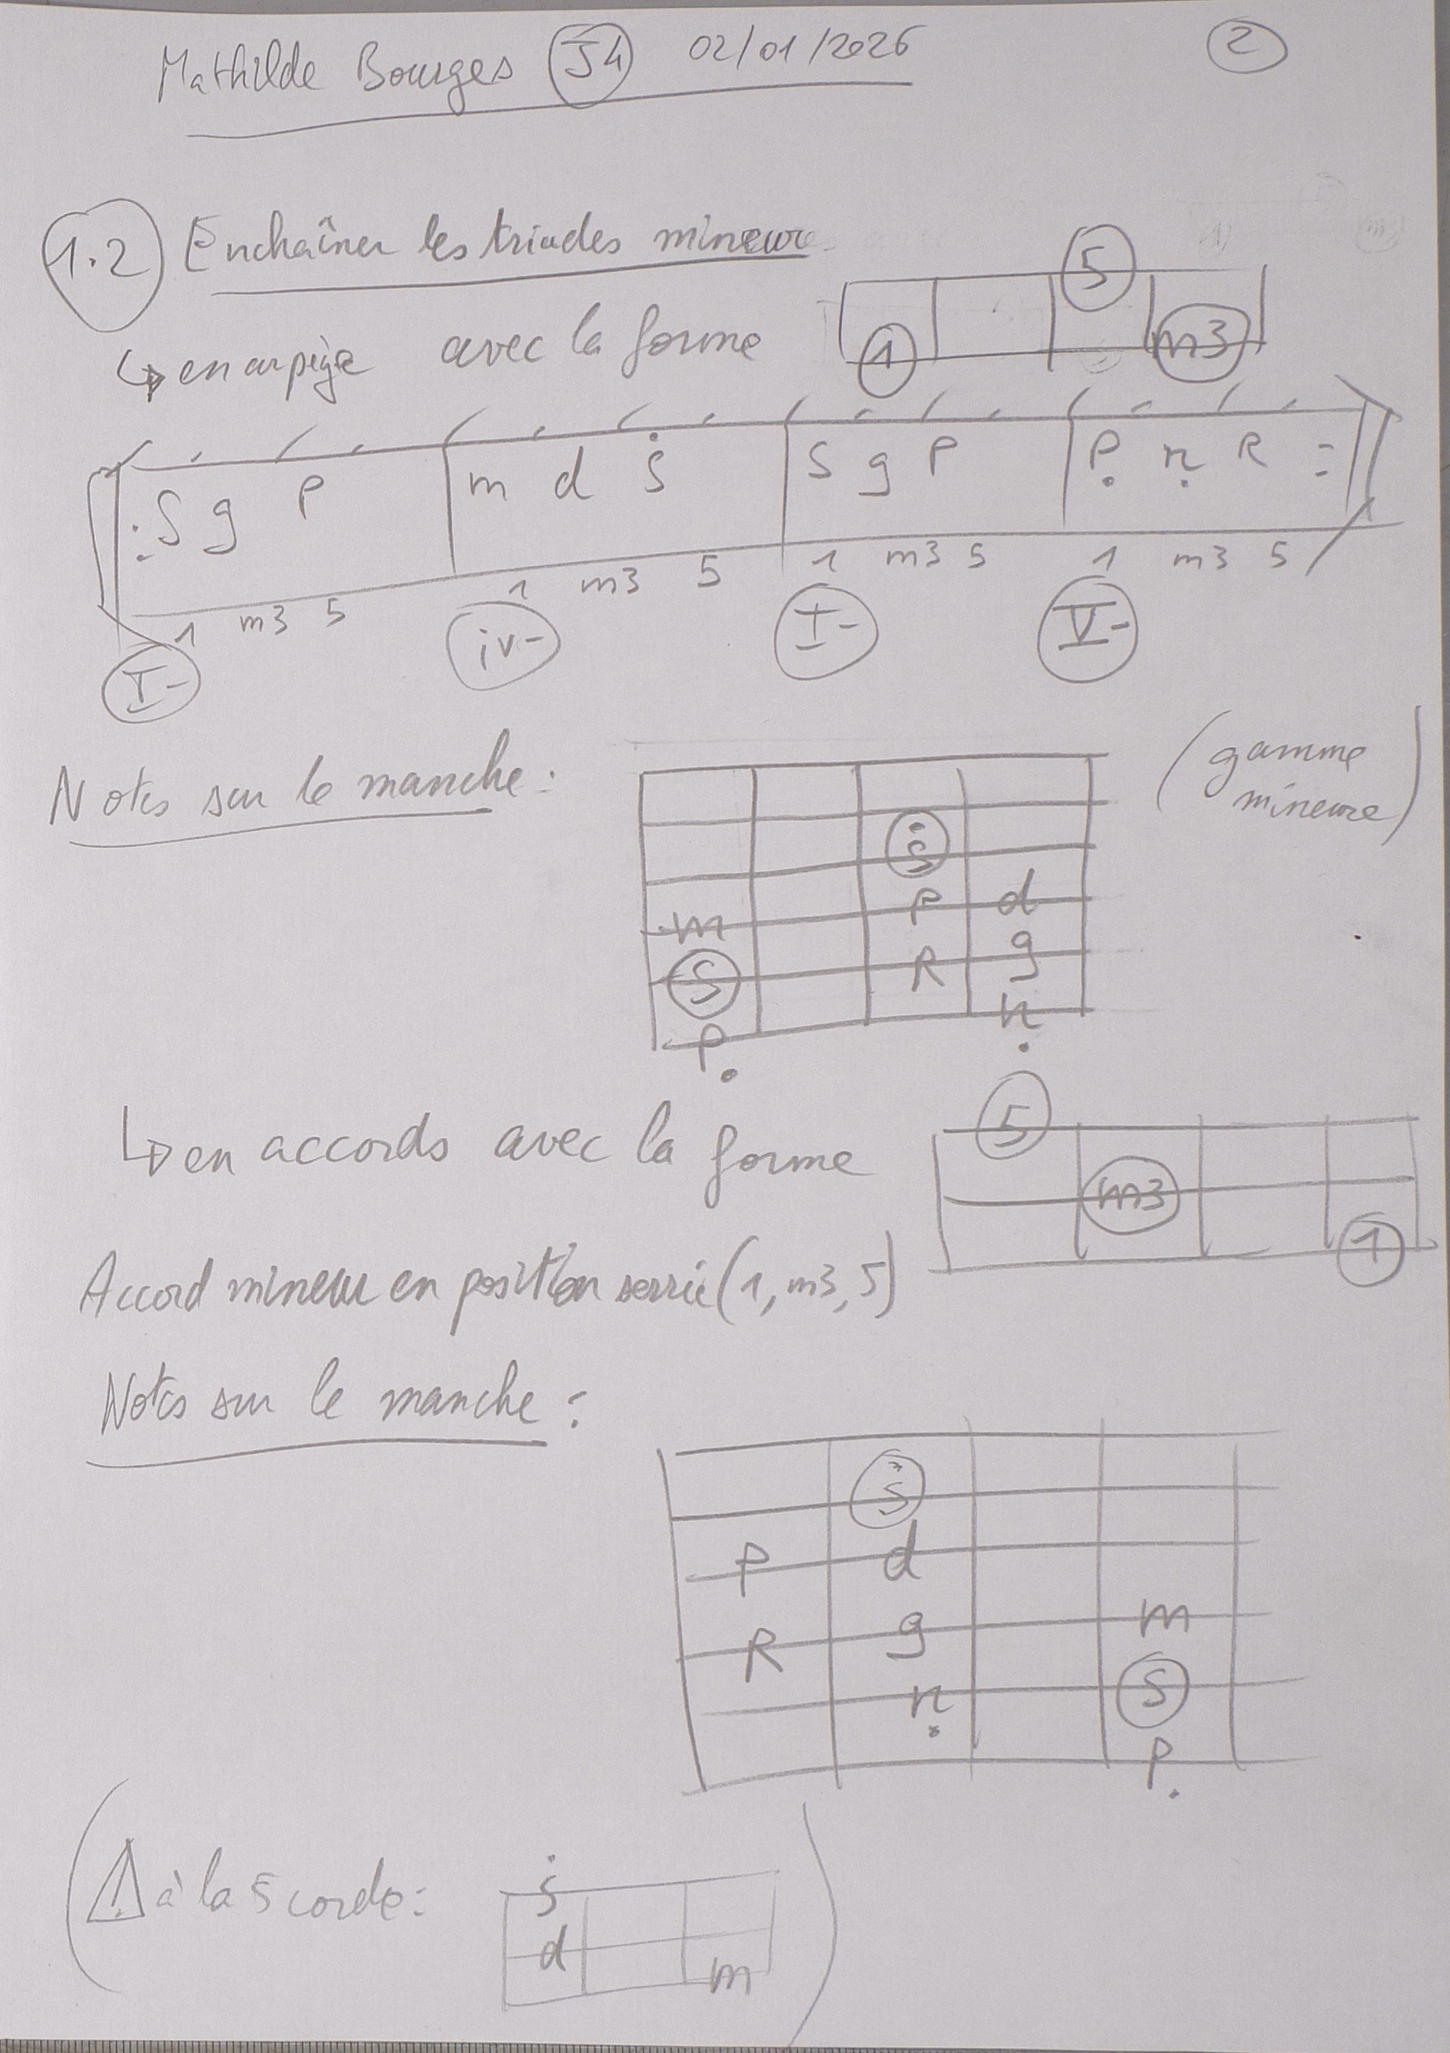 Mathilde Bourges J4 02/01/2026 2
1.2 Enchaîner les triades mineure
↳ en arpège avec la forme
5
1 m3
: S g P | m d ṡ | S g P | Ṗ ṇ R :
1 m3 5 1 m3 5 1 m3 5 1 m3 5
I- iv- I- V-
Notes sur le manche :
(gamme
mineure)
ṡ
m P d
S R g
P. ṇ
↳ en accords avec la forme
5
m3
1
Accord mineur en position serrée (1, m3, 5)
Notes sur le manche :
ṡ
P d
R g m
ṇ S
P.
(⚠ à la 5 corde :
ṡ
d
m )